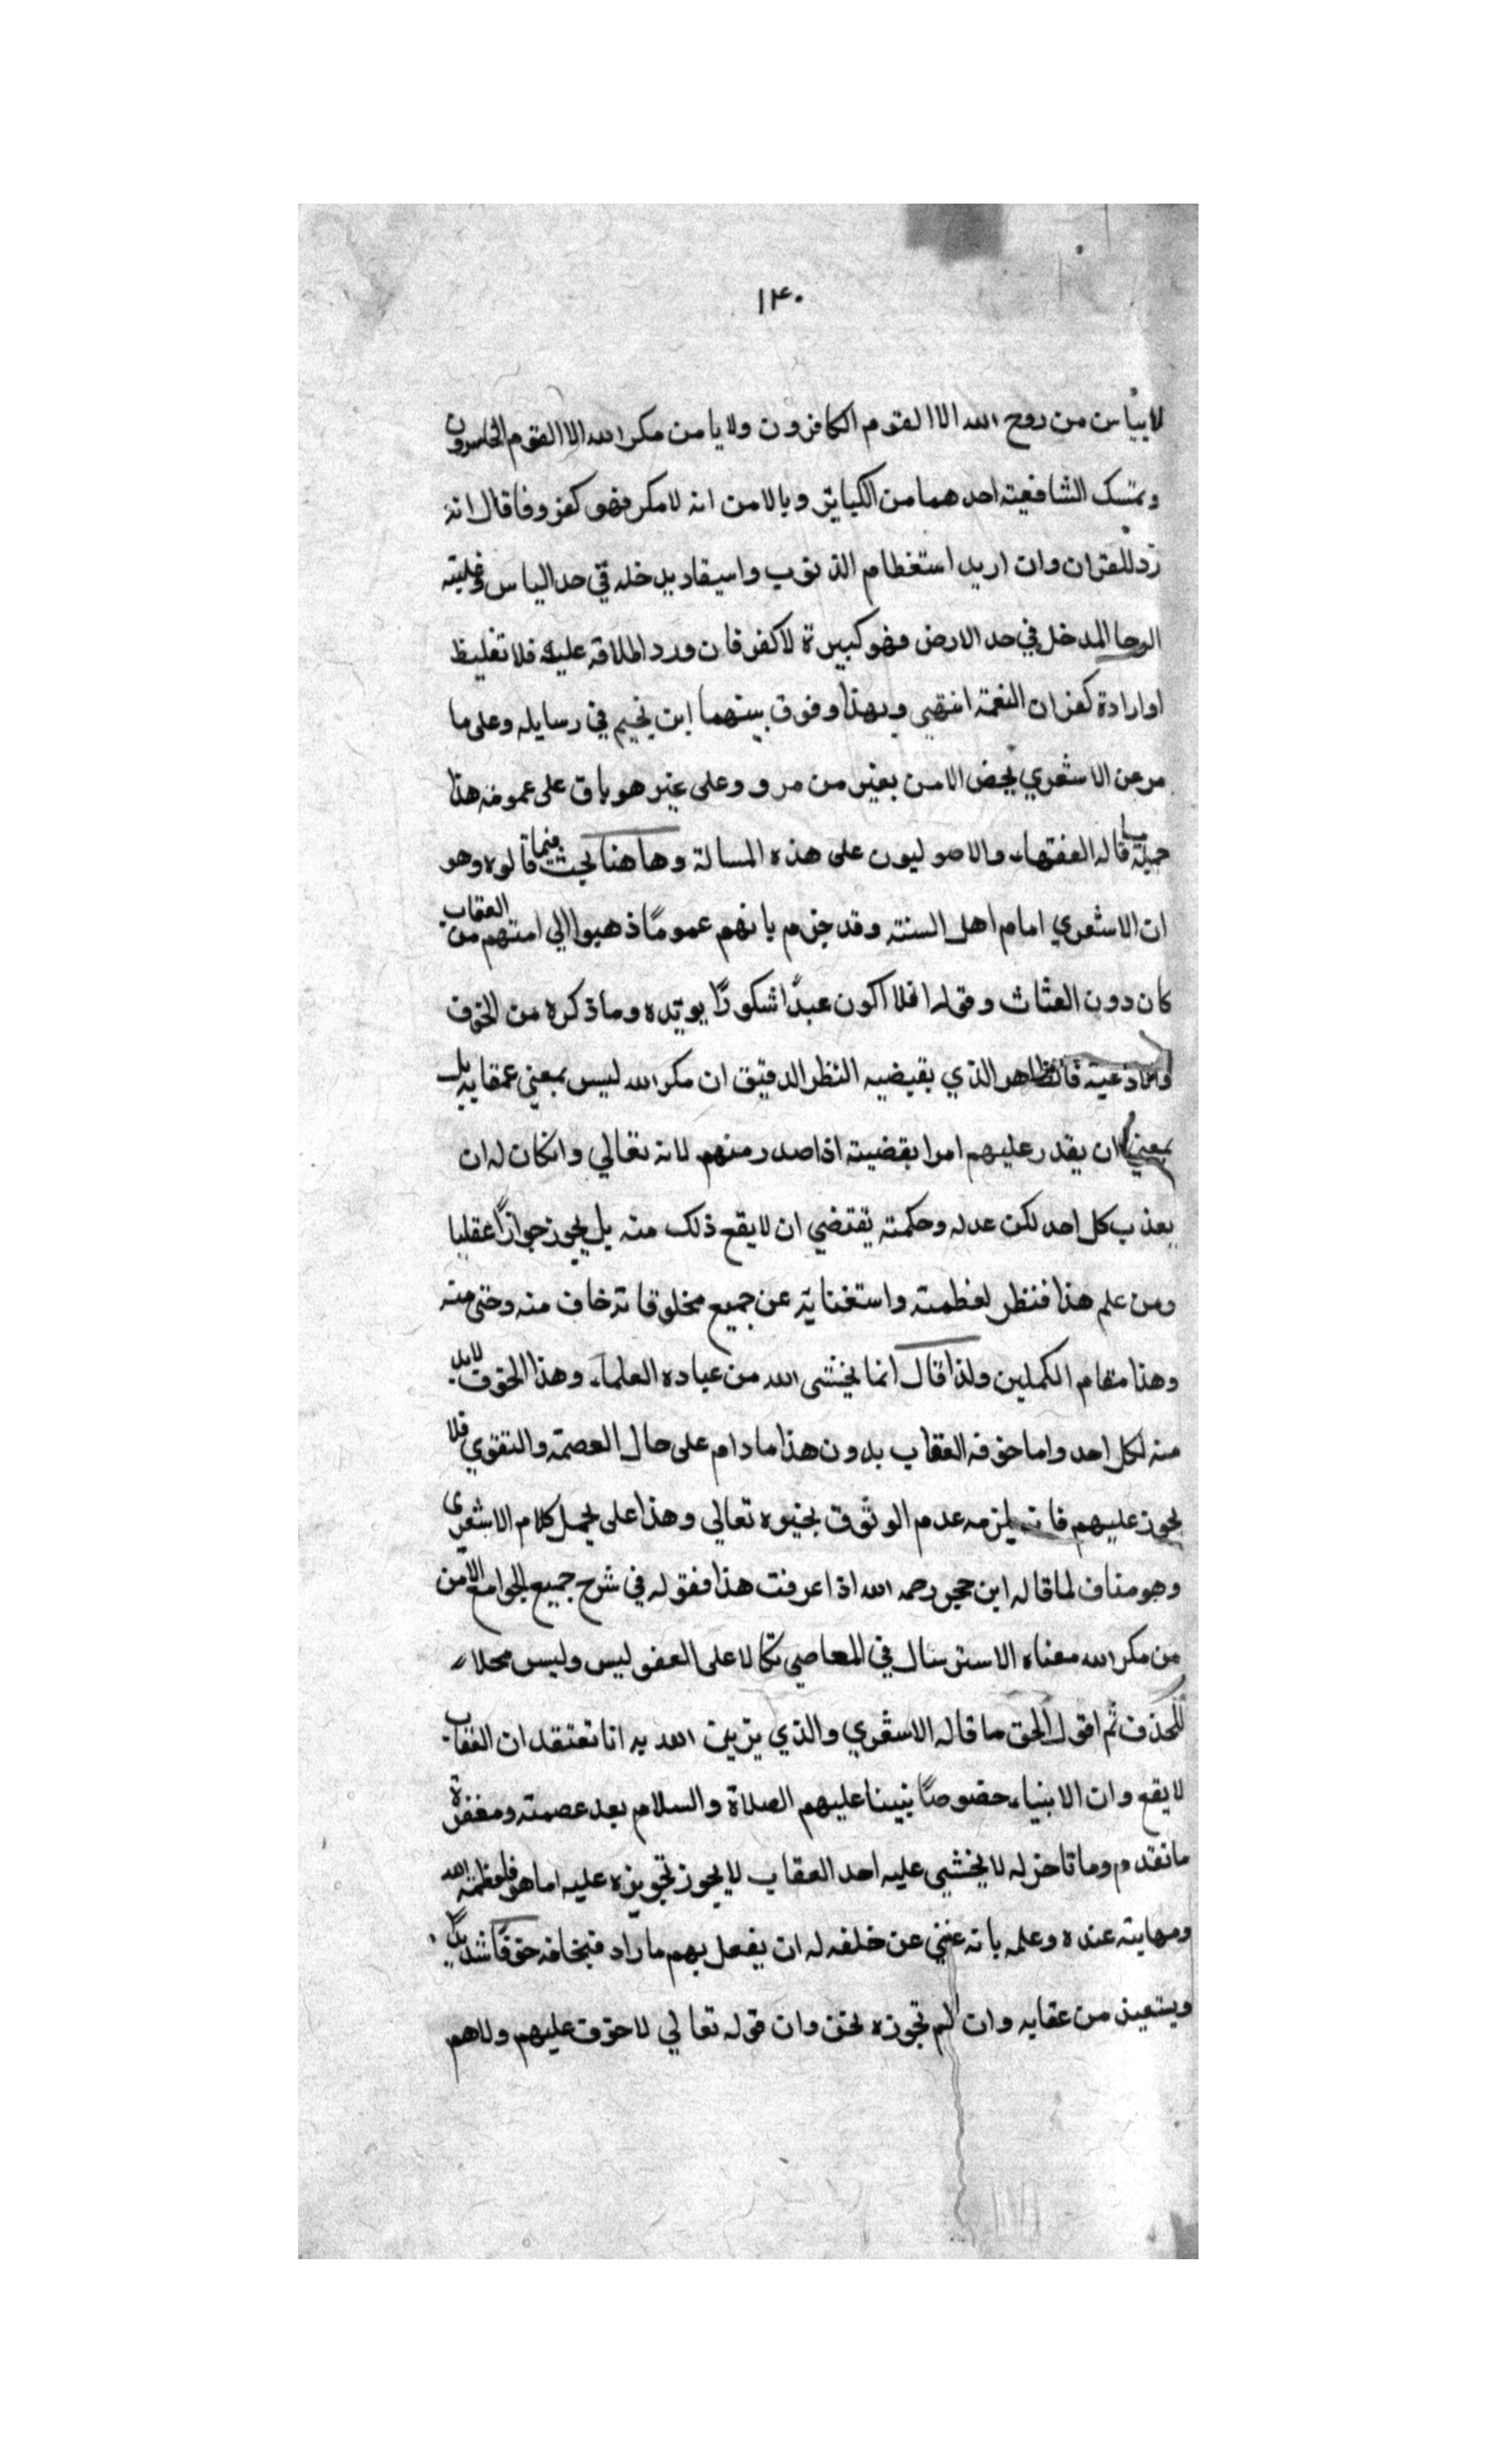 ١٤٠
لا ييأس من روح الله الا القوم الكافرون ولا يامن مكر الله الا القوم الخاسرون
وتمسك الشافعية احدهما من الكبائر وبالامن انه لا مكر فهو كفر وفاقا لانه
رد للقران وان اريد استعظام الذنوب واسيقاد يدخله في حد الياس وغلبته
الرجا المدخل في حد الارض فهو كبيرة لا كفر فان ورد اطلاقه عليه فلا تغليظ
او ارادة كفران النعمة انتهي وبهذا وفوق بينهما ابن نجيم في رسايله وعلى ما
مر عن الاشعري يخص الامن بغير من مر و وعلى غير هو باق على عمومه هذا
جملة ما قاله الفقهاء والاصوليون على هذه المسالة وهاهنا بحث فيما قالوه وهو
ان الاشعري امام اهل السنة وقد جزم بانهم عموما ذهبوا الي امنهم من العقاب
كان دون العثاث وقوله افلا اكون عبدًا شكورًا يويده وما ذكره من الخوف
فالظاهر الذي يقيضيه النظر الدقيق ان مكر الله ليس بمعني عقابه بل
بمعني ان يقدر عليهم امرا بقضية اذا صدر منهم لانه تعالي وانكان له ان
يعذب كل احد لكن عدله وحكمته تقتضي ان لا يقع ذلك منه بل يجوز جوازًا عقليا
ومن علم هذا فنظر لعظمته واستغنايه عن جميع مخلوقاته خاف منه وخشي منه
وهذا مقام الكملين ولذا قال انما يخشى الله من عباده العلماء وهذا الخوف لابد
منه لكل احد واما خوفه العقاب بدون هذا ما دام على حال العصمة والتقوي فلا
يجوز عليهم فانه يلزمه عدم الوثوق بخبره تعالي وهذا على يحمل كلام الاشعري
وهو مناف لما قاله ابن حجر رحمه الله اذا عرفت هذا فقوله في شرح جميع الجوامع الامن
من مكر الله معناه الاسترسال في المعاصي تكالا على العفو ليس وليس محلا
للحذف ثم اقول الحق ما قاله الاشعري والذي يزين الله به انا نعتقد ان العقاب
لا يقع وان الانبياء خصوصًا نبينا عليهم الصلاة والسلام بعد عصمته ومغفرة
ما تقدم وما تاخر له لا يخشي عليه احد العقاب لا يجوز تجويزه عليه اما هو فلعظمة الله
ومهابته عنده وعلمه بانه غني عن خلقه له ان يفعل بهم ما راد فيخافه خوفًا شديدًا
ويستعيذ من عقابه وان لم تجوزه نحن وان قوله تعالي لا خوف عليهم ولا هم